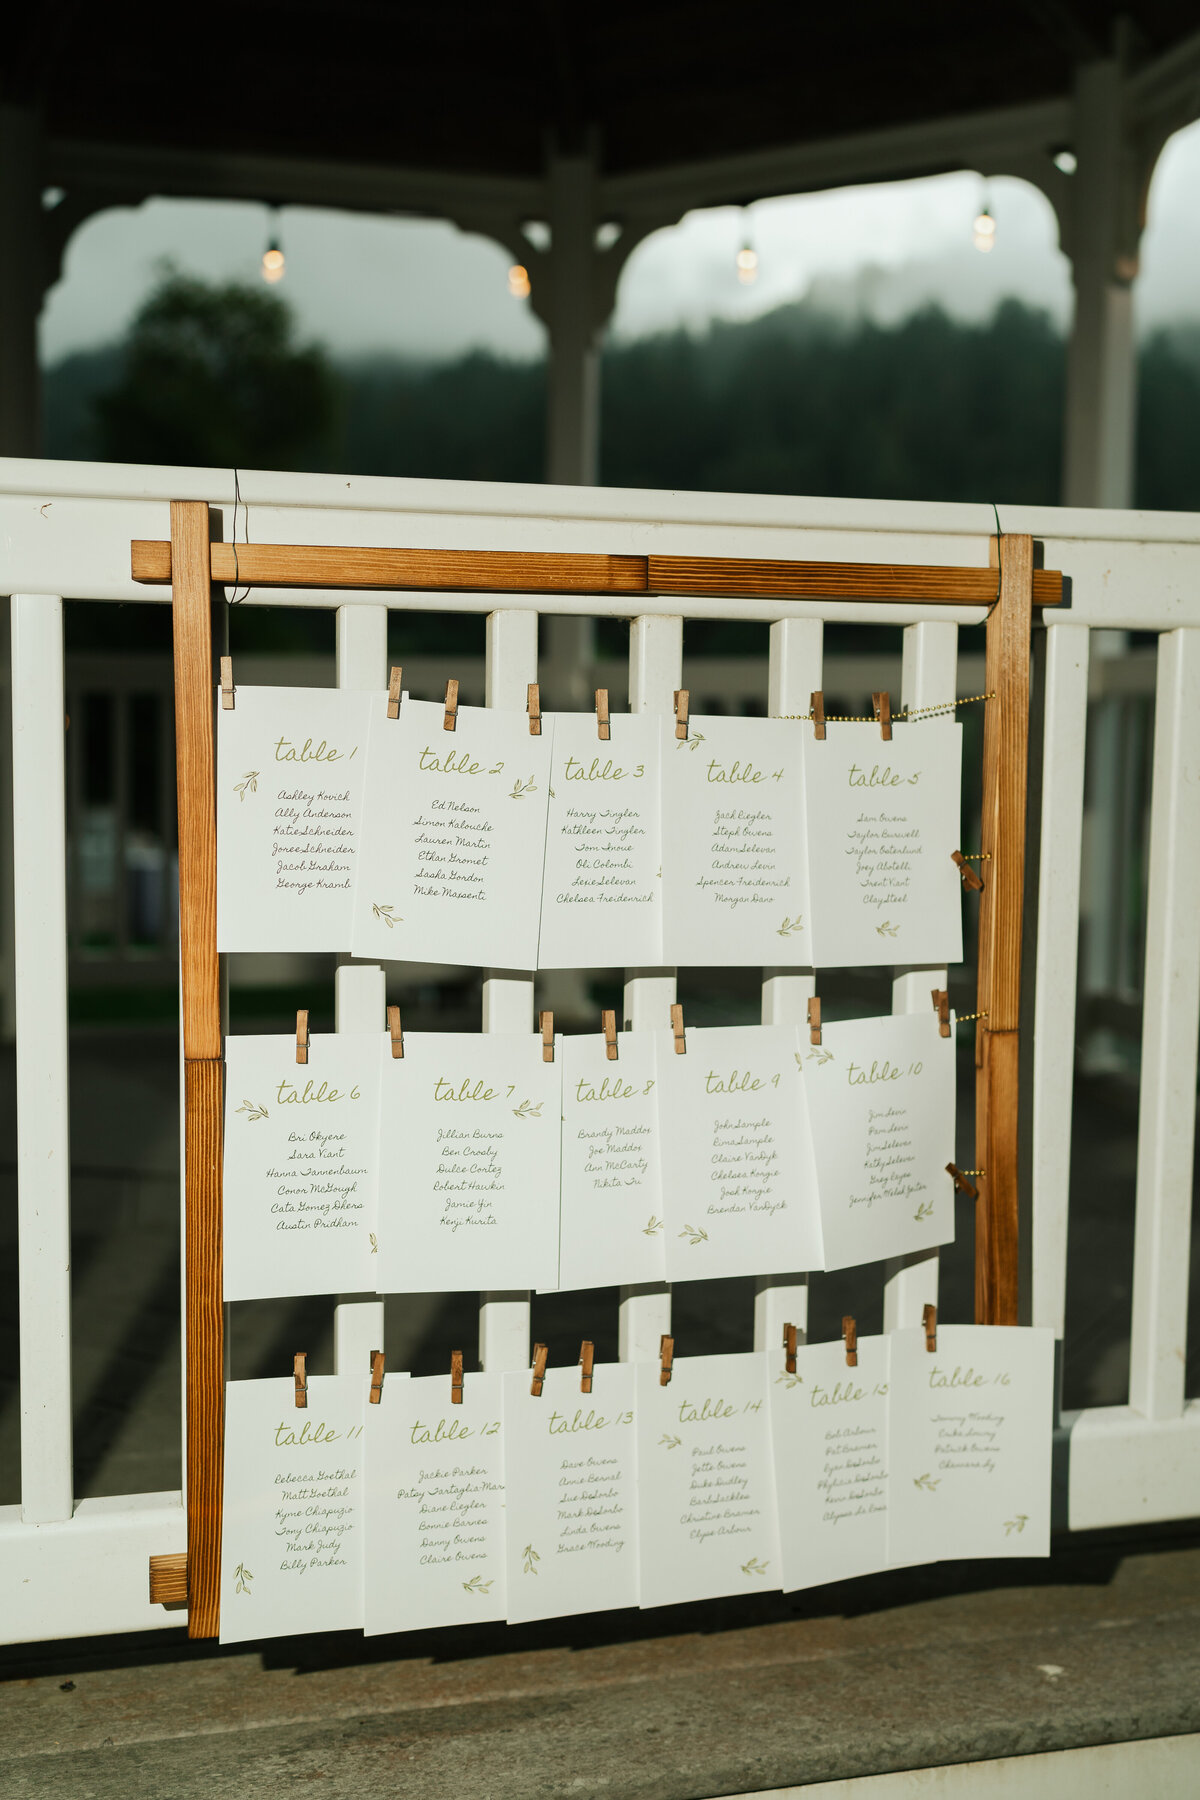 table 1
Ashley Kovich
Ally Anderson
Katie Schneider
Joree Schneider
Jacob Graham
George Kramb
table 2
Ed Nelson
Simon Kalouche
Lauren Martin
Ethan Gromet
Sasha Gordon
Mike Massenti
table 3
Harry Tingler
Kathleen Tingler
Tom Inoue
Oli Colombi
Lexie Selevan
Chelsea Freidenrich
table 4
Zach Riegler
Steph Owens
Adam Selevan
Andrew Levin
Spencer Freidenrich
Morgan Dano
table 5
Sam Owens
Taylor Burwell
Taylor Osterlund
Joey Alotelli
Trent Viant
Clay Steel
table 6
Bri Okyere
Sara Viant
Hanna Tannenbaum
Conor McGough
Cata Gomez Dhers
Austin Pridham
table 7
Jillian Burns
Ben Crosby
Dulce Cortez
Robert Hawkin
Jamie Yin
Kenji Kurita
table 8
Brandy Maddox
Joe Maddox
Ann McCarty
Nikita Tu
table 9
John Sample
Rima Sample
Claire VanDyk
Chelsea Korgie
Josh Korgie
Brendan VanDyck
table 10
Jim Levin
Pam Levin
Jim Selevan
Kathy Selevan
Greg Reyes
Jennifer Welsh Zeiter
table 11
Rebecca Goethal
Matt Goethal
Kyme Chiapuzio
Tony Chiapuzio
Mark Judy
Billy Parker
table 12
Jackie Parker
Patsy Tartaglia-Mar
Diane Riegler
Bonnie Barnes
Danny Owens
Claire Owens
table 13
Dave Owens
Annie Bernal
Sue DeSorbo
Mark DeSorbo
Linda Owens
Grace Wooding
table 14
Paul Owens
Jette Owens
Duke Dudley
Barb Sackles
Christine Bramer
Elyse Arbour
table 15
Bob Arbour
Pat Bramer
Ryan DeSorbo
Phylicia DeSorbo
Kevin DeSorbo
Alyssa La Rosa
table 16
Tommy Wooding
Erika Lowry
Patrick Owens